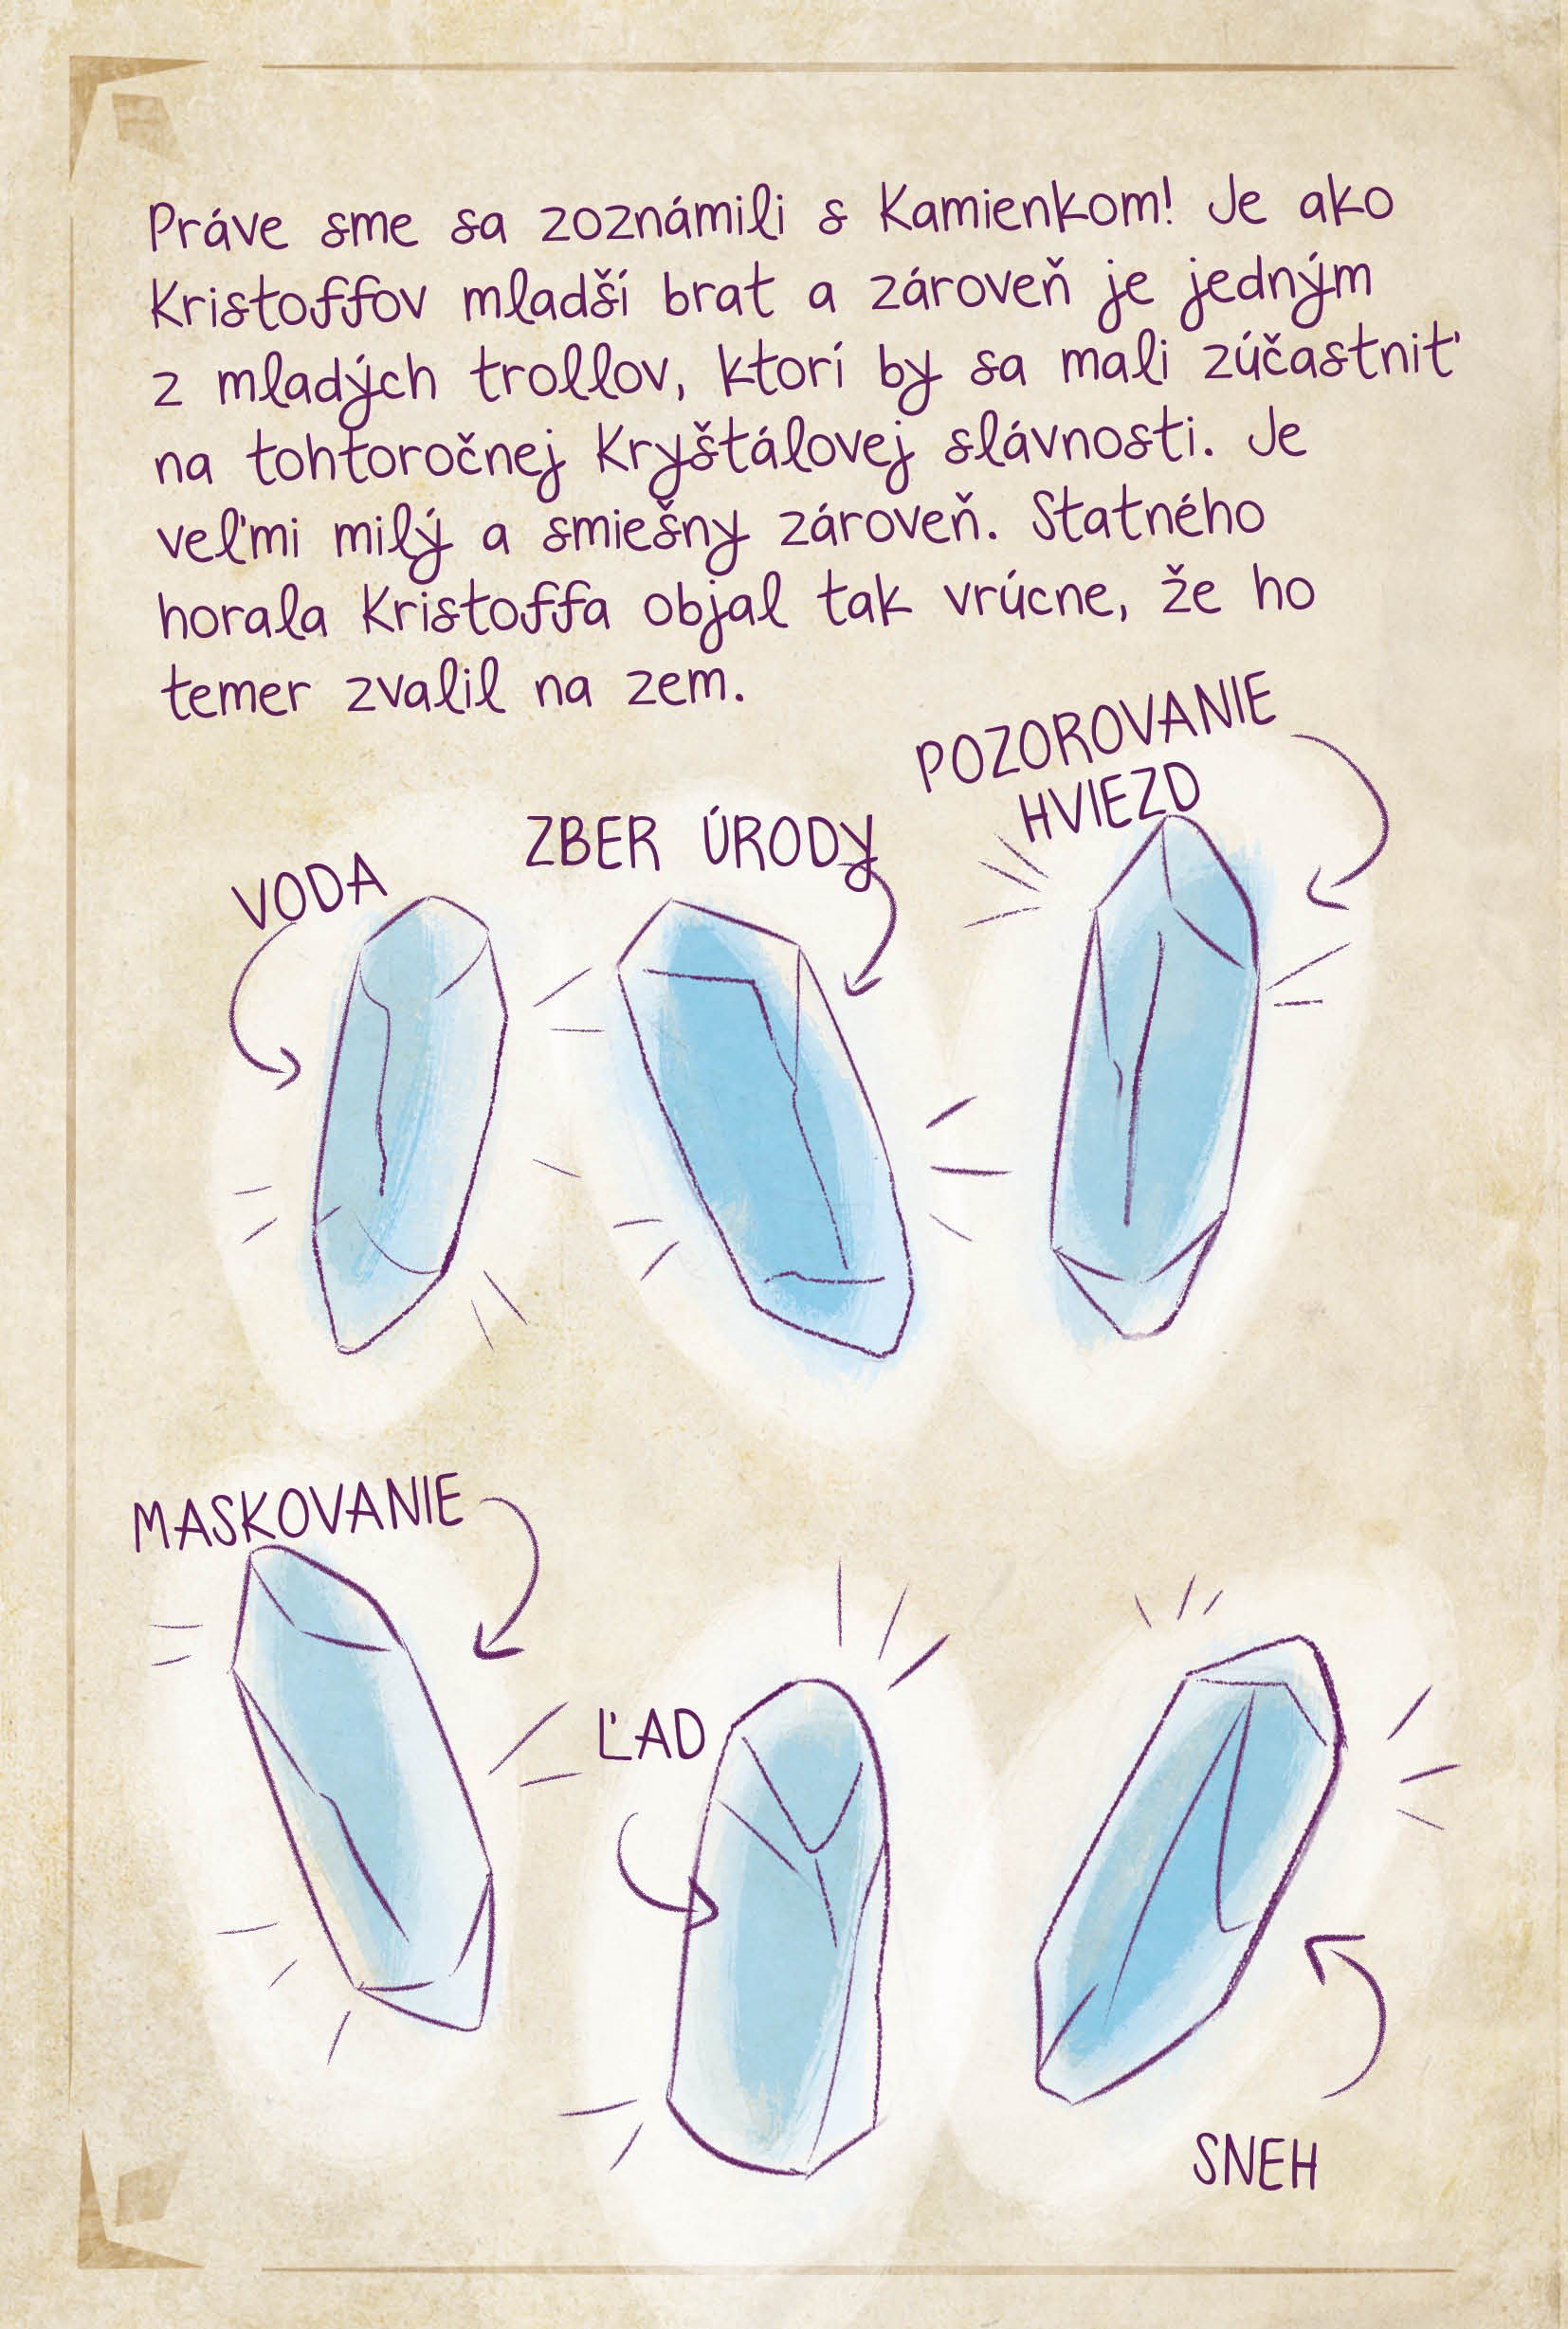 Práve sme sa zoznámili s Kamienkom! Je ako
Kristoffov mladší brat a zároveň je jedným
z mladých trollov, ktorí by sa mali zúčastniť
na tohtoročnej Kryštálovej slávnosti. Je
veľmi milý a smiešny zároveň. Statného
horala Kristoffa objal tak vrúcne, že ho
temer zvalil na zem.
POZOROVANIE
HVIEZD
ZBER ÚRODY
VODA
MASKOVANIE
ĽAD
SNEH